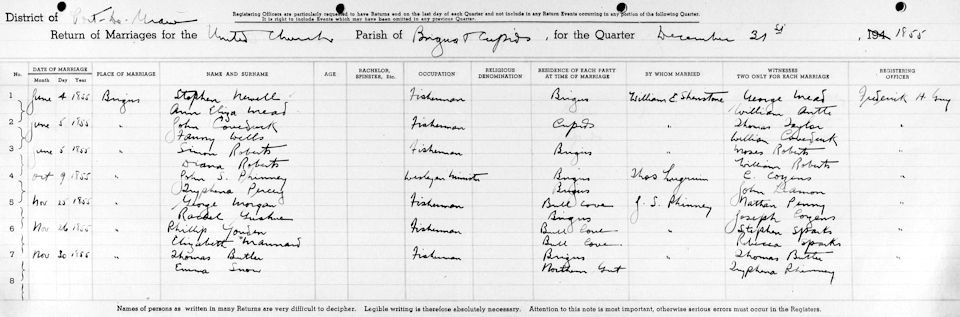 Registering Officers are particularly requested to have Returns end on the last day of each Quarter and not include in any Return Events occurring in any portion of the following Quarter.
It is right to include Events which may have been omitted in any previous Quarter.
District of Port-de-Grave
Return of Marriages for the United Church Parish of Brigus & Cupids, for the Quarter December 31st, 194 1855
No. DATE OF MARRIAGE Month Day Year PLACE OF MARRIAGE NAME AND SURNAME AGE BACHELOR, SPINSTER, Etc. OCCUPATION RELIGIOUS DENOMINATION RESIDENCE OF EACH PARTY AT TIME OF MARRIAGE BY WHOM MARRIED WITNESSES TWO ONLY FOR EACH MARRIAGE REGISTERING OFFICER
1 June 4 1855 Brigus Stephen Newell Fisherman Brigus William E Shenstone George Mead Frederick H.
Ann Eliza Mead William Antle
2 June 5 1855 " John Fisherman Cupids " Thomas Taylor "
Fanny Wells William
3 June 5 1855 " Simon Roberts Fisherman Brigus " Moses Roberts "
Diana Roberts William Roberts
4 Oct 9 1855 " John S. Phinney Wesleyan Minister Brigus Thos E. Cozens "
Tryphena Percey Brigus John Leamon
5 Nov 25 1855 " George Morgan Fisherman Bull Cove J. S. Phinney Nathan Penny "
Rachel Brigus Joseph Cozens
6 Nov 26 1855 " Phillip Youden Fisherman Bull Cove " Stephen Sparks "
Elizabeth Bull Cove Rebecca Sparks
7 Nov 30 1855 " Thomas Butler Fisherman Brigus " Thomas Butler "
Emma Snow Northern Gut Tryphena Phinney
8
Names of persons as written in many Returns are very difficult to decipher. Legible writing is therefore absolutely necessary. Attention to this note is most important, otherwise serious errors must occur in the Registers.